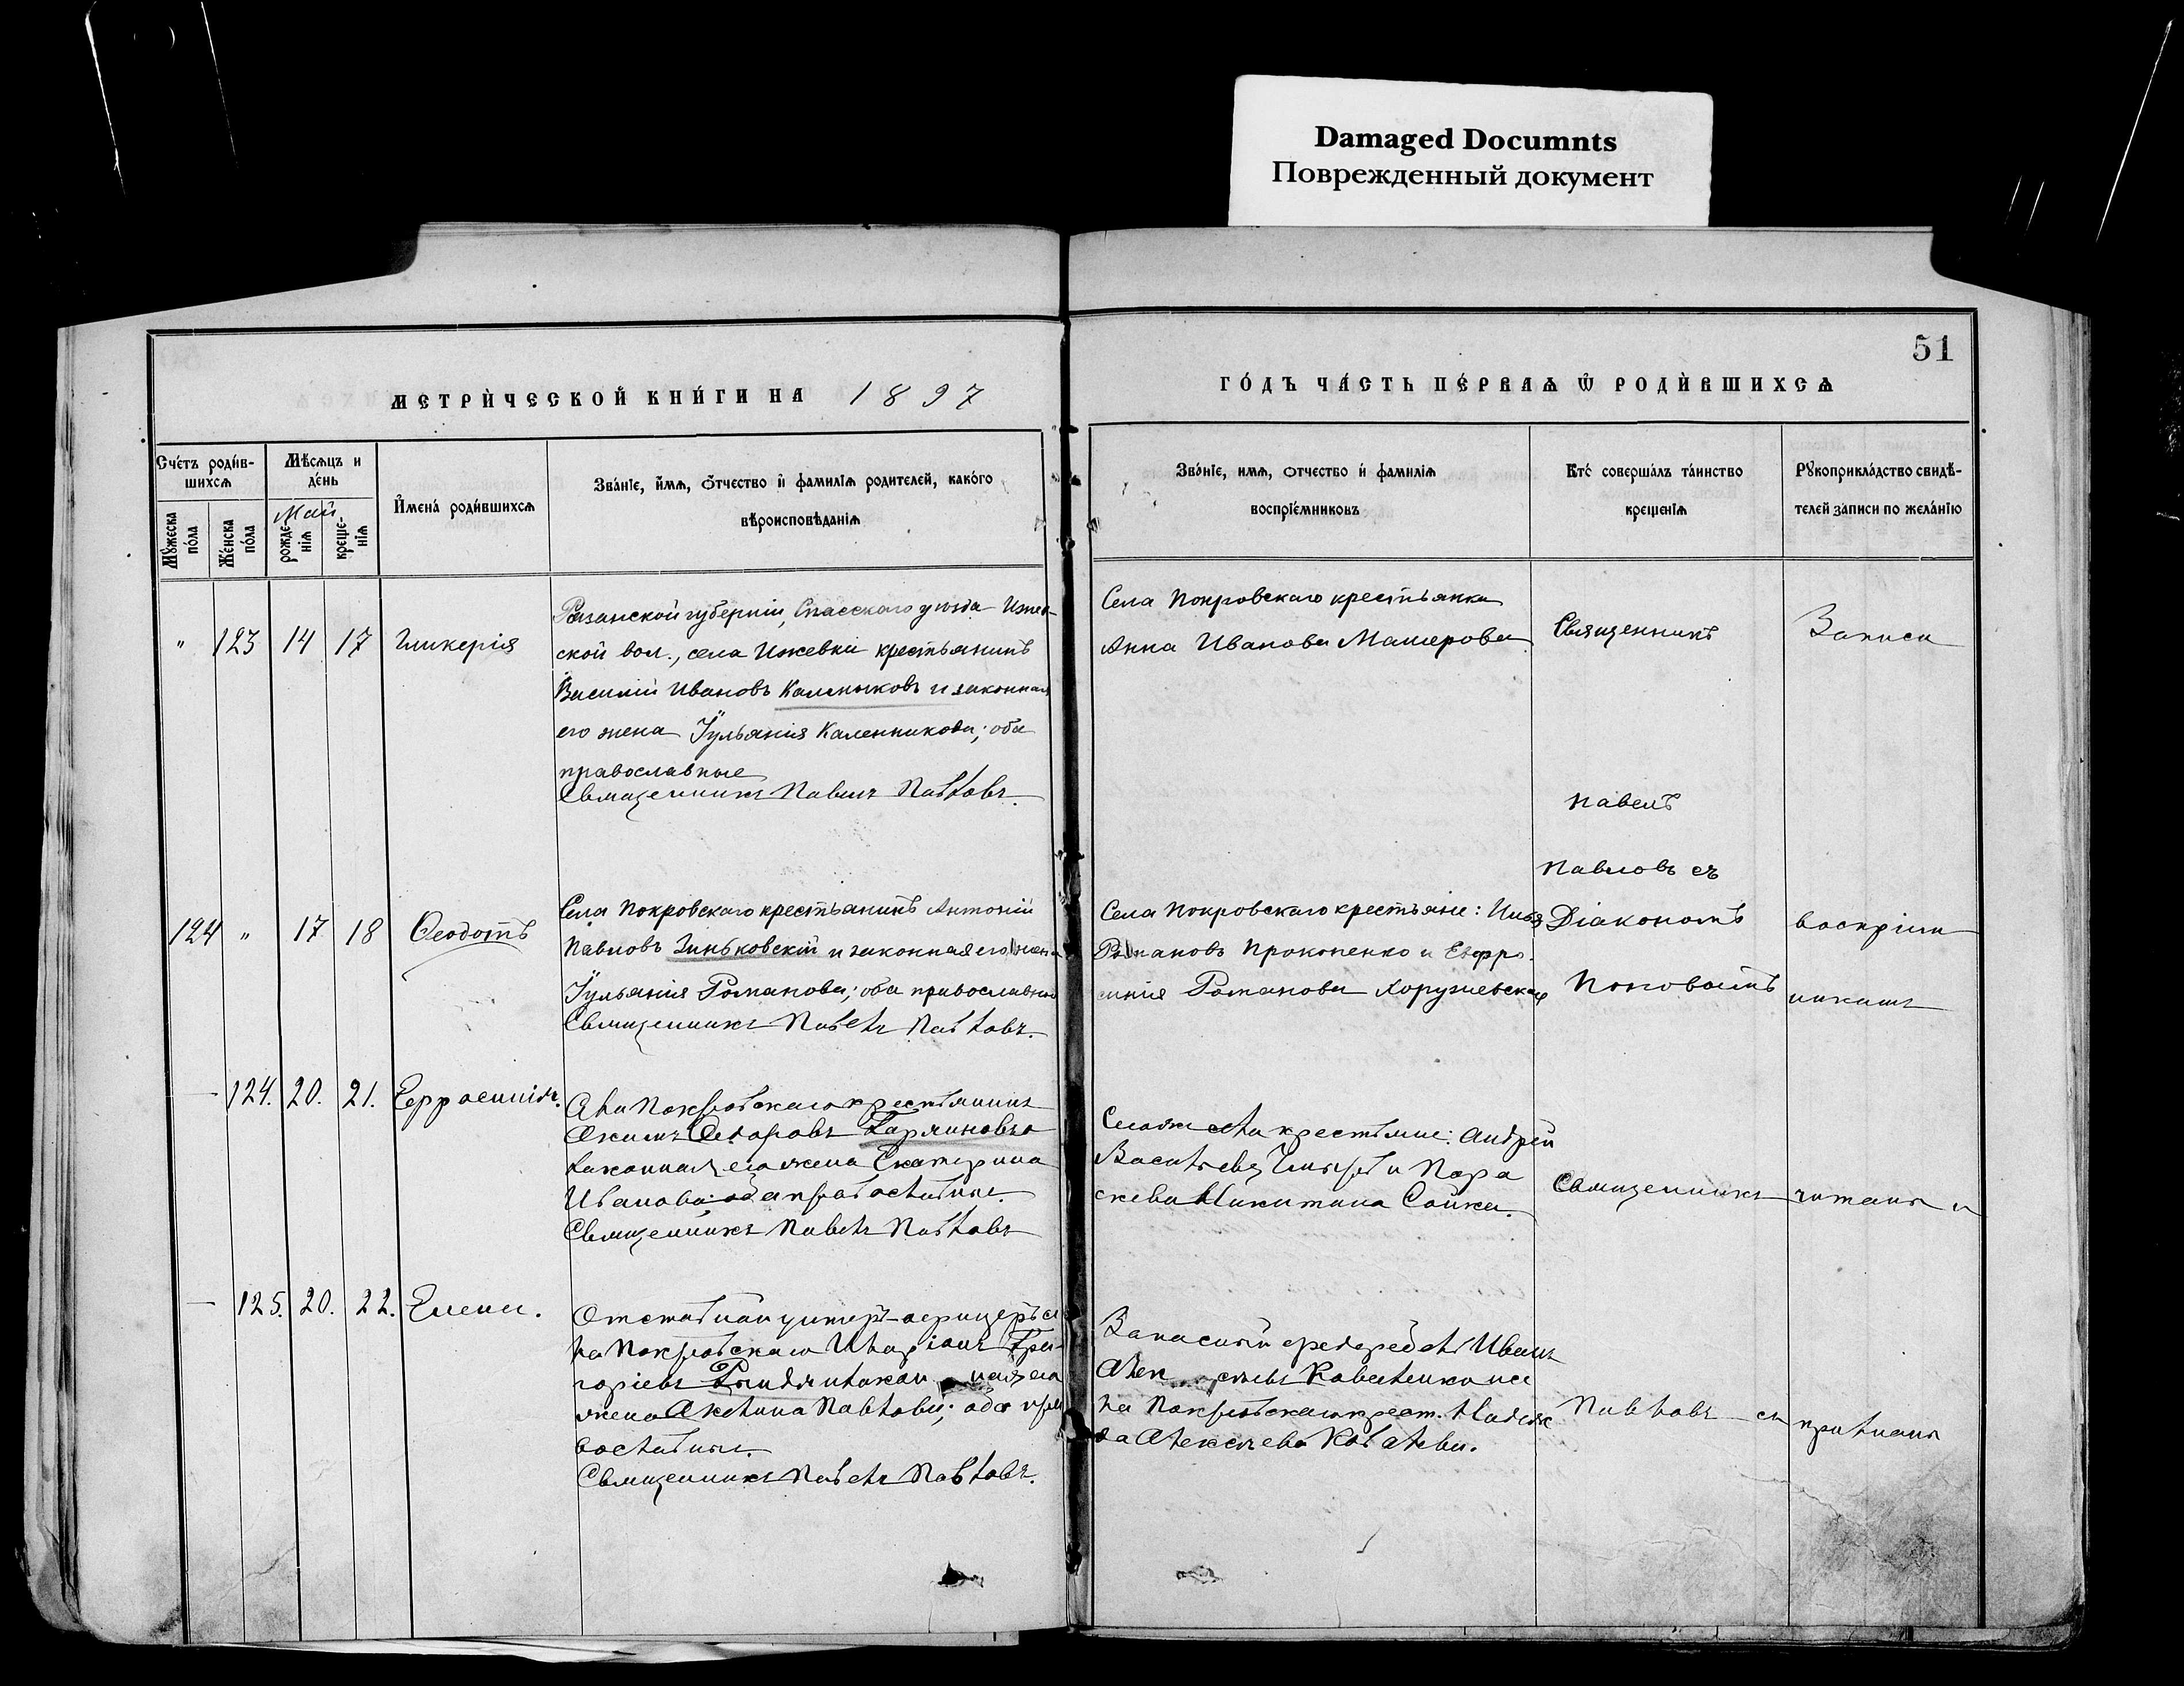 Damaged Documnts
Поврежденный документ
51
МЕТРИ́ЧЕСКОЙ КНИ́ГИ НА 1897
ГО́ДЪ ЧА́СТЬ ПЕ́РВАѦ Ѡ҆ РОДИ́ВШИХСѦ
Сче́тъ роди́в-
шихсѧ
Мꙋ́жеска
по́ла
Же́нска
по́ла
Мѣ́сѧцъ и
де́нь
Май
рожде-
нїѧ
креще-
нїѧ
И҆мена́ роди́вшихсѧ
Зва́нїе, и҆́мѧ, ѻ҆́тчество и҆ фамилїѧ родителей, како́го
вѣроисповѣданїѧ
Зва́нїе, имѧ, ѻтчество и҆ фамилїѧ
воспрїе́мниковъ
Кто́ совершалъ та́инство
крещенїѧ
Рꙋкоприкла́дство свидѣ́-
телей записи по жела́нїю
" 123 14 17 Гликерія
Рязанской губерніи, Спасскаго уѣзда Ижев-
ской вол., села Ижевки крестьянинъ
Василій Ивановъ Каленниковъ и законная
его жена Іульянія Каленникова; оба
православные
Священникъ Павелъ Павловъ.
Села Покровскаго крестьянка
Анна Иванова Машерова
Священникъ
Павелъ
Павловъ съ
Записи
124 " 17 18 Ѳеодотъ
Села Покровскаго крестьянинъ Антоній
Павловъ Зиньковскій и законная его жена
Іульянія Романова; оба православные
Священникъ Павелъ Павловъ.
Села Покровскаго крестьяне: Илья
Романовъ Прокопенко и Евфро-
синія Романова Хоружевская
Діакономъ
Поповымъ
воспріем
никамъ
— 124. 20. 21. Евфросинія.
Села Покровскаго крестьянинъ
Акимъ Ѳедоровъ
законная его жена Екатерина
Иванова: оба православные.
Священникъ Павелъ Павловъ
села крестьяне: Андрей
Васильевъ и Пара
скева Никитина Сойка.
Священникъ
читаны и
— 125. 20. 22. Елена.
Отставной унтеръ-офицеръ се
ла Покровскаго Иларіонъ Гри-
горіевъ ная его
жена Акилина Павлова; оба пра
вославные.
Священникъ Павелъ Павловъ.
Запасный Иванъ
Коваленко и се
ла Покровскаго крест. Надеж
да Алексѣева Ковалева.
Павловъ съ